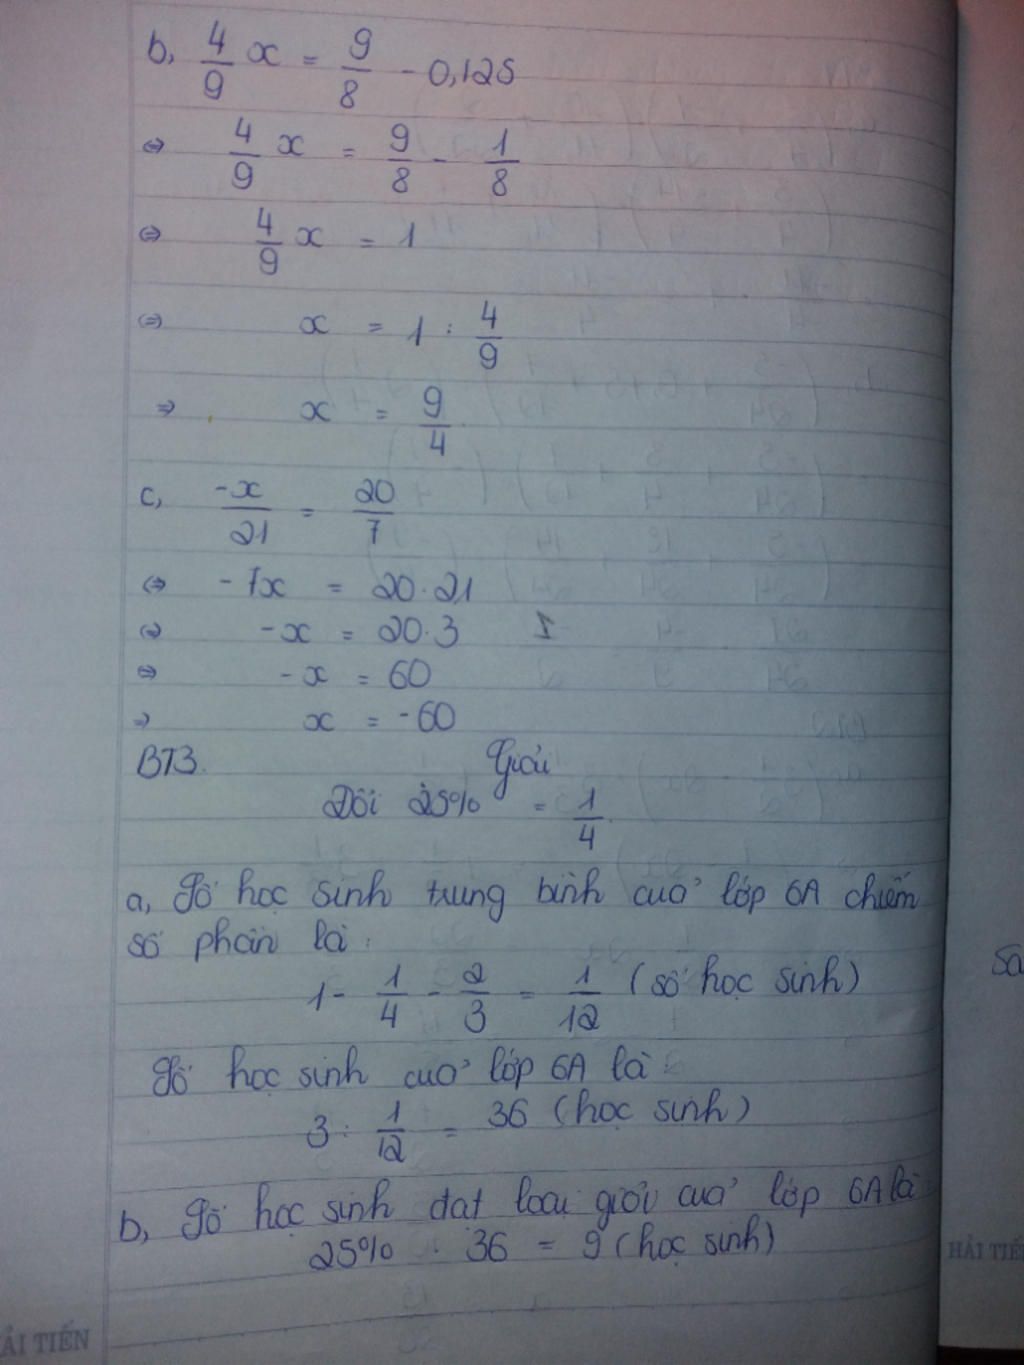 b, 4/9 x = 9/8 - 0,125
⇔ 4/9 x = 9/8 - 1/8
⇔ 4/9 x = 1
⇔ x = 1 : 4/9
⇒ x = 9/4
c, -x/21 = 20/7
⇔ -7x = 20.21
⇔ -x = 20.3
⇒ -x = 60
⇒ x = -60
BT3. Giải
Đổi 25% = 1/4
a, Số học sinh trung bình của lớp 6A chiếm
số phần là:
1 - 1/4 - 2/3 = 1/12 (số học sinh)
Số học sinh của lớp 6A là:
3 : 1/12 = 36 (học sinh)
b, Số học sinh đạt loại giỏi của lớp 6A là
25% . 36 = 9 (học sinh)
HẢI TIẾ
ẢI TIẾN